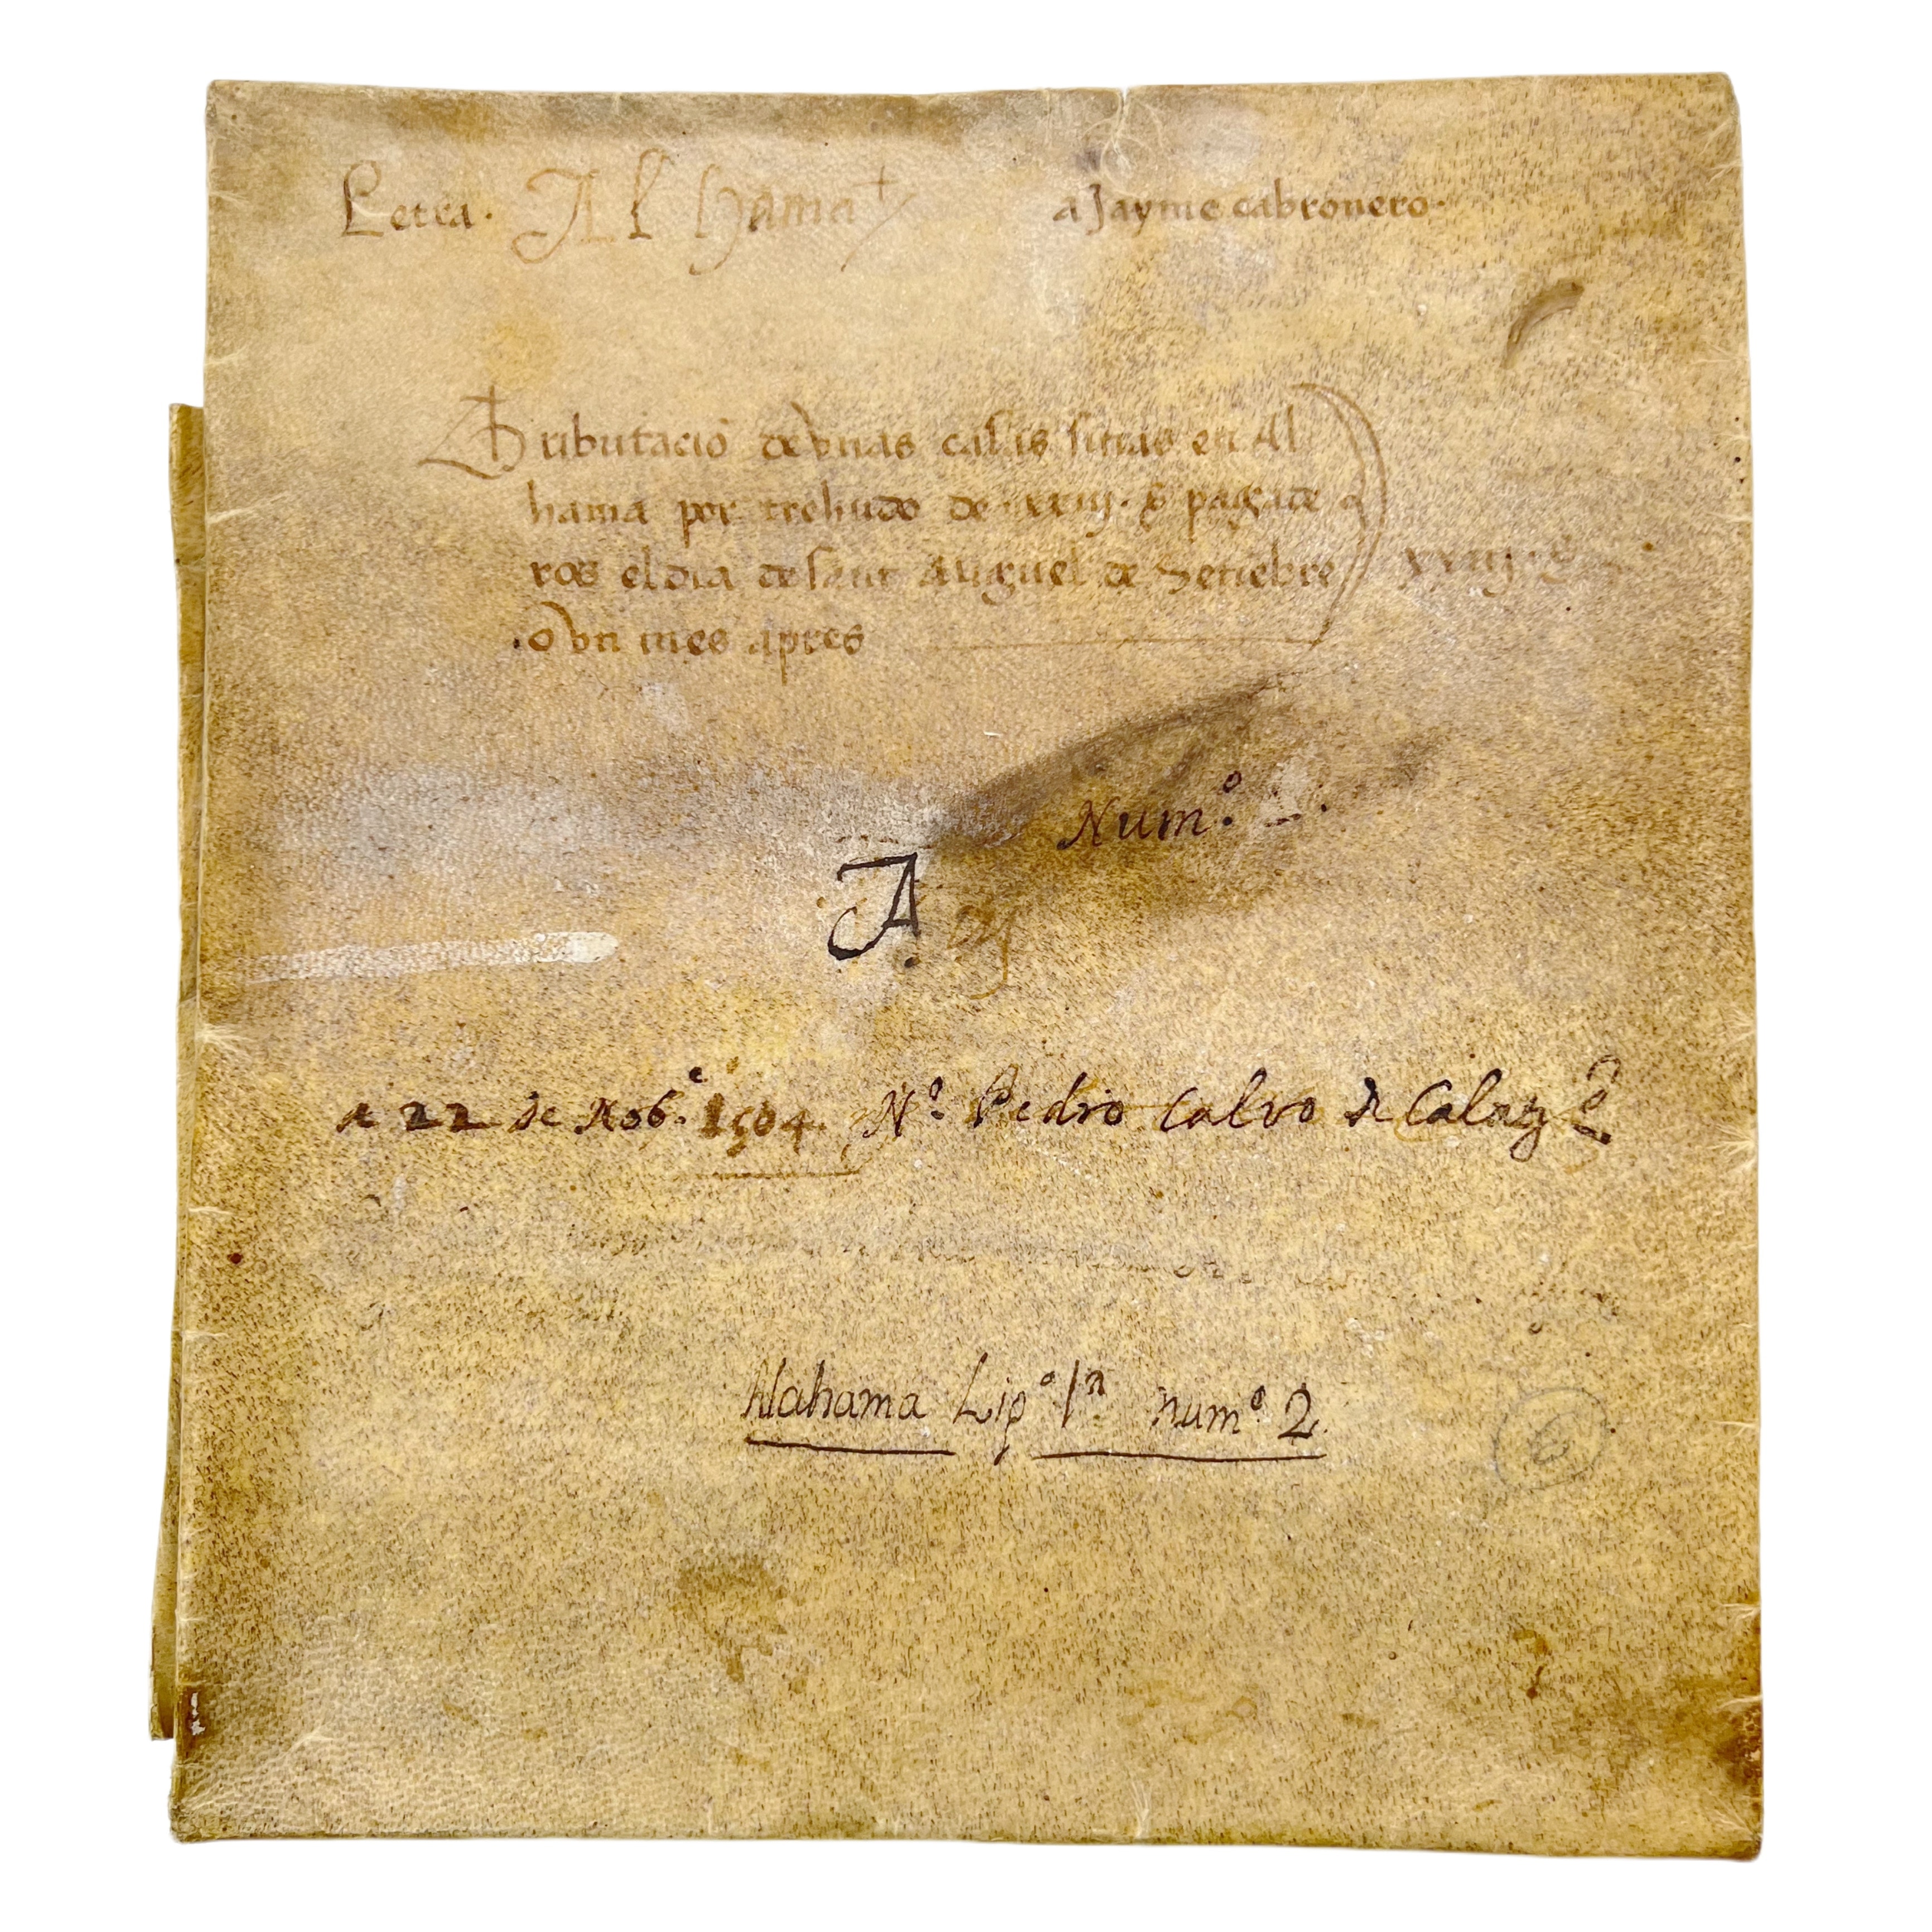 Letra. Al hama a Jayme cabronero.
Tributacio de vnas casas sitias en Al
hama por trehudo de .xxiij. ẞ pagade
ros el dia de sant Miguel de Setiebre xxiij. ẞ
o vn mes apres
Num.º
A.
a 22 de Nob.e 1504. N.º Pedro Calvo de Calaty
Alahama Lig.º 1.º num.º 2.